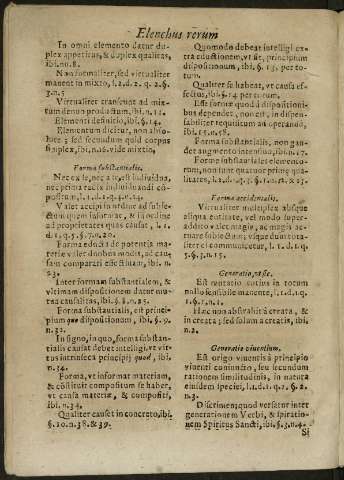 Elenchus rerum
In omni elemento datur du-
plex appetitus, & duplex qualitas,
ibi. n. 8.
Non formaliter, sed virtualiter
manent in mixto, l. 2. d. 2. q. 2. §.
3. n. 5
Virtualiter transeunt ad mix-
tum denuo productum, ibi. n. 12.
Elementi definitio, ibi §. 14.
Elementum dicitur, non abso-
lute; sed secundum quid corpus
simplex, ibi. n. 16. vide mixtio,
Forma substantialis.
Nec ex se, nec a
nec prima radix individuandi cō-
positum, l. 1. d. 1. q. 4. n. 14.
Valet accipi in ordine ad subie-
ctum quem informat, & in ordine
ad proprietates quas causat, l. 1.
d. 1. q. 5. §. 7. n. 20.
Forma educta de potentia ma-
teriæ valet duobus modis, ad cau-
sam comparati effectivam, ibi. n.
23.
Inter formam substantialem, &
vltimam dispositionem datur mu-
tua causalitas, ibi. §. 8. n. 25.
Forma substantialis, est princi-
pium quo dispositionum, ibi. §. 9.
n. 32.
In signo, in quo, forma substan-
tialis causat debet intelligi, vt vir-
tus intrinseca principij quod, ibi.
n. 34.
Forma, vt informat materiam,
& cōstituit compositum se habet,
vt causa materiæ, & compositi,
ibi. n. 34.
Qualiter causet in concreto, ibi.
§. 10. n. 38. & 39.
Quomodo debeat intelligi ex-
tra eductionem, vt sit, principium
dispositionum, ibi. §. 13. per to-
tum.
Qualiter se habeat, vt causa ef-
fectus, ibi §. 14 per totum.
Est formæ quodd dispositioni-
bus dependet, non est, in dispen-
sabiliter requisitum ad operandū,
ibi. 15. n. 58.
Forma substantialis, non gau-
det augmento intensivo, ibi. n. 17.
Formæ substantiales elemento-
rum, non sunt quatuor primæ qua-
litates,
Forma accidentalis.
Virtualiter multiplex absque
aliqua entitate, vel modo super-
addito valet magis, ac magis ac-
tuare subiectum; vsque dum tota-
liter ei communicetur, l. 1. d. 1. q.
5. §. 3. n. 15.
Generatio,
Est mutatio totius in totum
nullo sensibili manente, l. 1. d. 1. q.
1. §. 1. n. 1.
Hæc non abstrahit à creata, &
in creata; sed solum a creatis, ibi.
n. 2.
Generatio viventium.
Est origo viventis à principio
viventi coniuncto, seu secundum
rationem similitudinis, in natura
eiusdem speciei, l. 1. d. 1. q. 1. §. 2.
n. 3.
Discrimen, quod versatur inter
generationem Verbi, & spiratio-
nem Spiritus Sancti, ibi. §. 3. n. 4.
Si